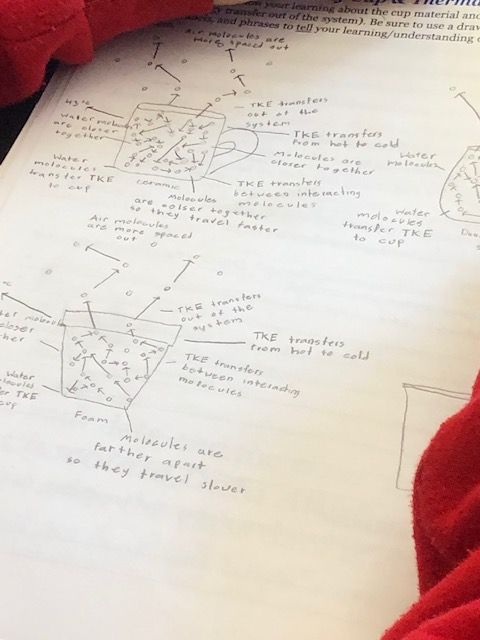 & Therma
your learning about the cup material and
transfer out of the system). Be sure to use a draw
and phrases to tell your learning/understanding
Air molecules are
more spaced out
TKE transfers
out of the
system
45°C
water
are closer
together
TKE transfers
from hot to cold
Molecules are
closer together
Water
molecules
transfer TKE
to cup
ceramic
TKE transfers
between interacting
molecules
Molecules
are colser together
so they travel faster
Water
molecules
water
molecules
transfer TKE
to cup
Air molecules
are more spaced
out
TKE transfers
out of the
system
TKE transfers
from hot to cold
TKE transfers
between interacting
molecules
Water
TKE
Foam
Molecules are
farther apart
so they travel slower